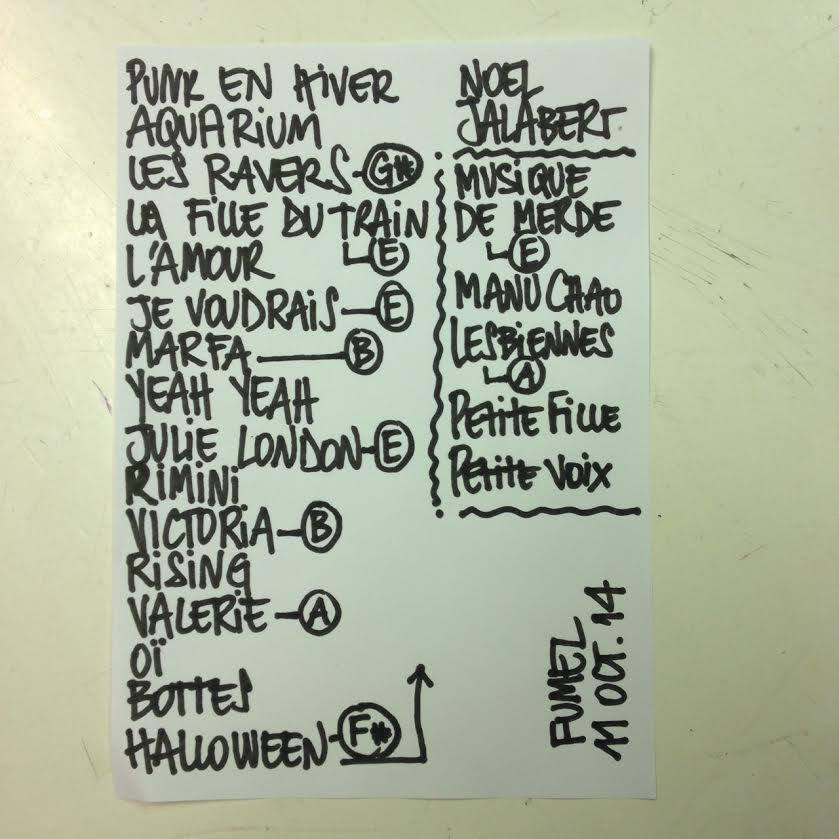 PUNK EN HIVER
AQUARIUM
LES RAVERS - G#
LA FILLE DU TRAIN
E
L'AMOUR
JE VOUDRAIS - E
MARFA - B
YEAH YEAH
JULIE LONDON - E
RIMINI
VICTORIA - B
RISING
VALERIE - A
OÏ
BOTTES
HALLOWEEN - F#
NOEL
JALABERT
MUSIQUE
DE MERDE
E
MANU CHAO
LESBIENNES
A
PETITE FILLE
PETITE VOIX
FUMEL
11 OCT. 14